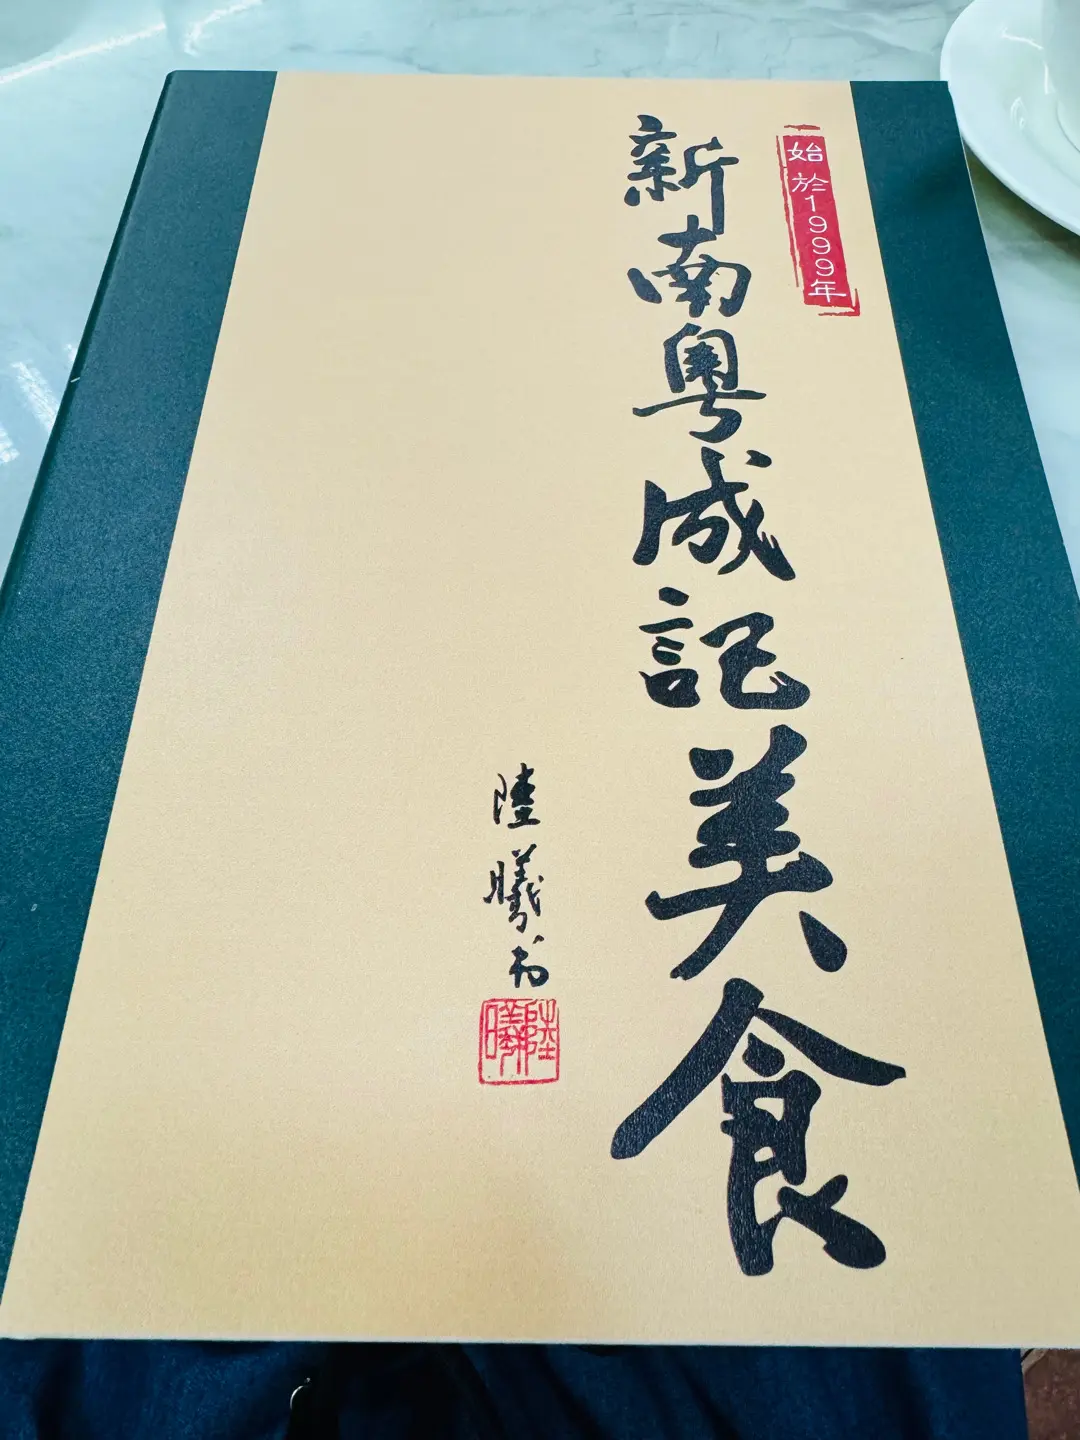 始於1999年
新南粵成記美食
陸曦书
陸曦